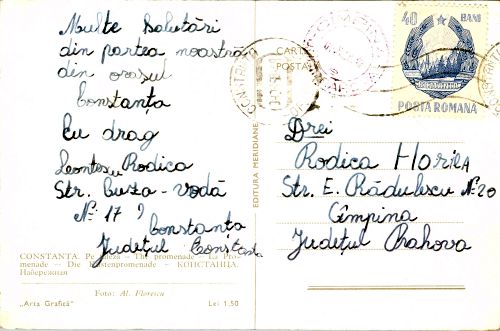 Multe Salutări
din partea noastră
din orașul
Constanța
Cu drag
Leontescu Rodica
Str. Cuza-Vodă
Nº 17
Constanța
Județul Constanța
CONSTANȚA. Pe faleză - The promenade - La Pro-
menade - Die Küstenpromenade - КОНСТАНЦА.
Набережная
Foto: Al. Florescu
„Arta Grafică"
Lei 1.50
EDITURA MERIDIANE
CARTE
POSTALĂ
40 BANI
POSTA ROMANA
Drei
Rodica Horila
Str. E. Rădulescu Nº 20
Cîmpina
Județul Prahova